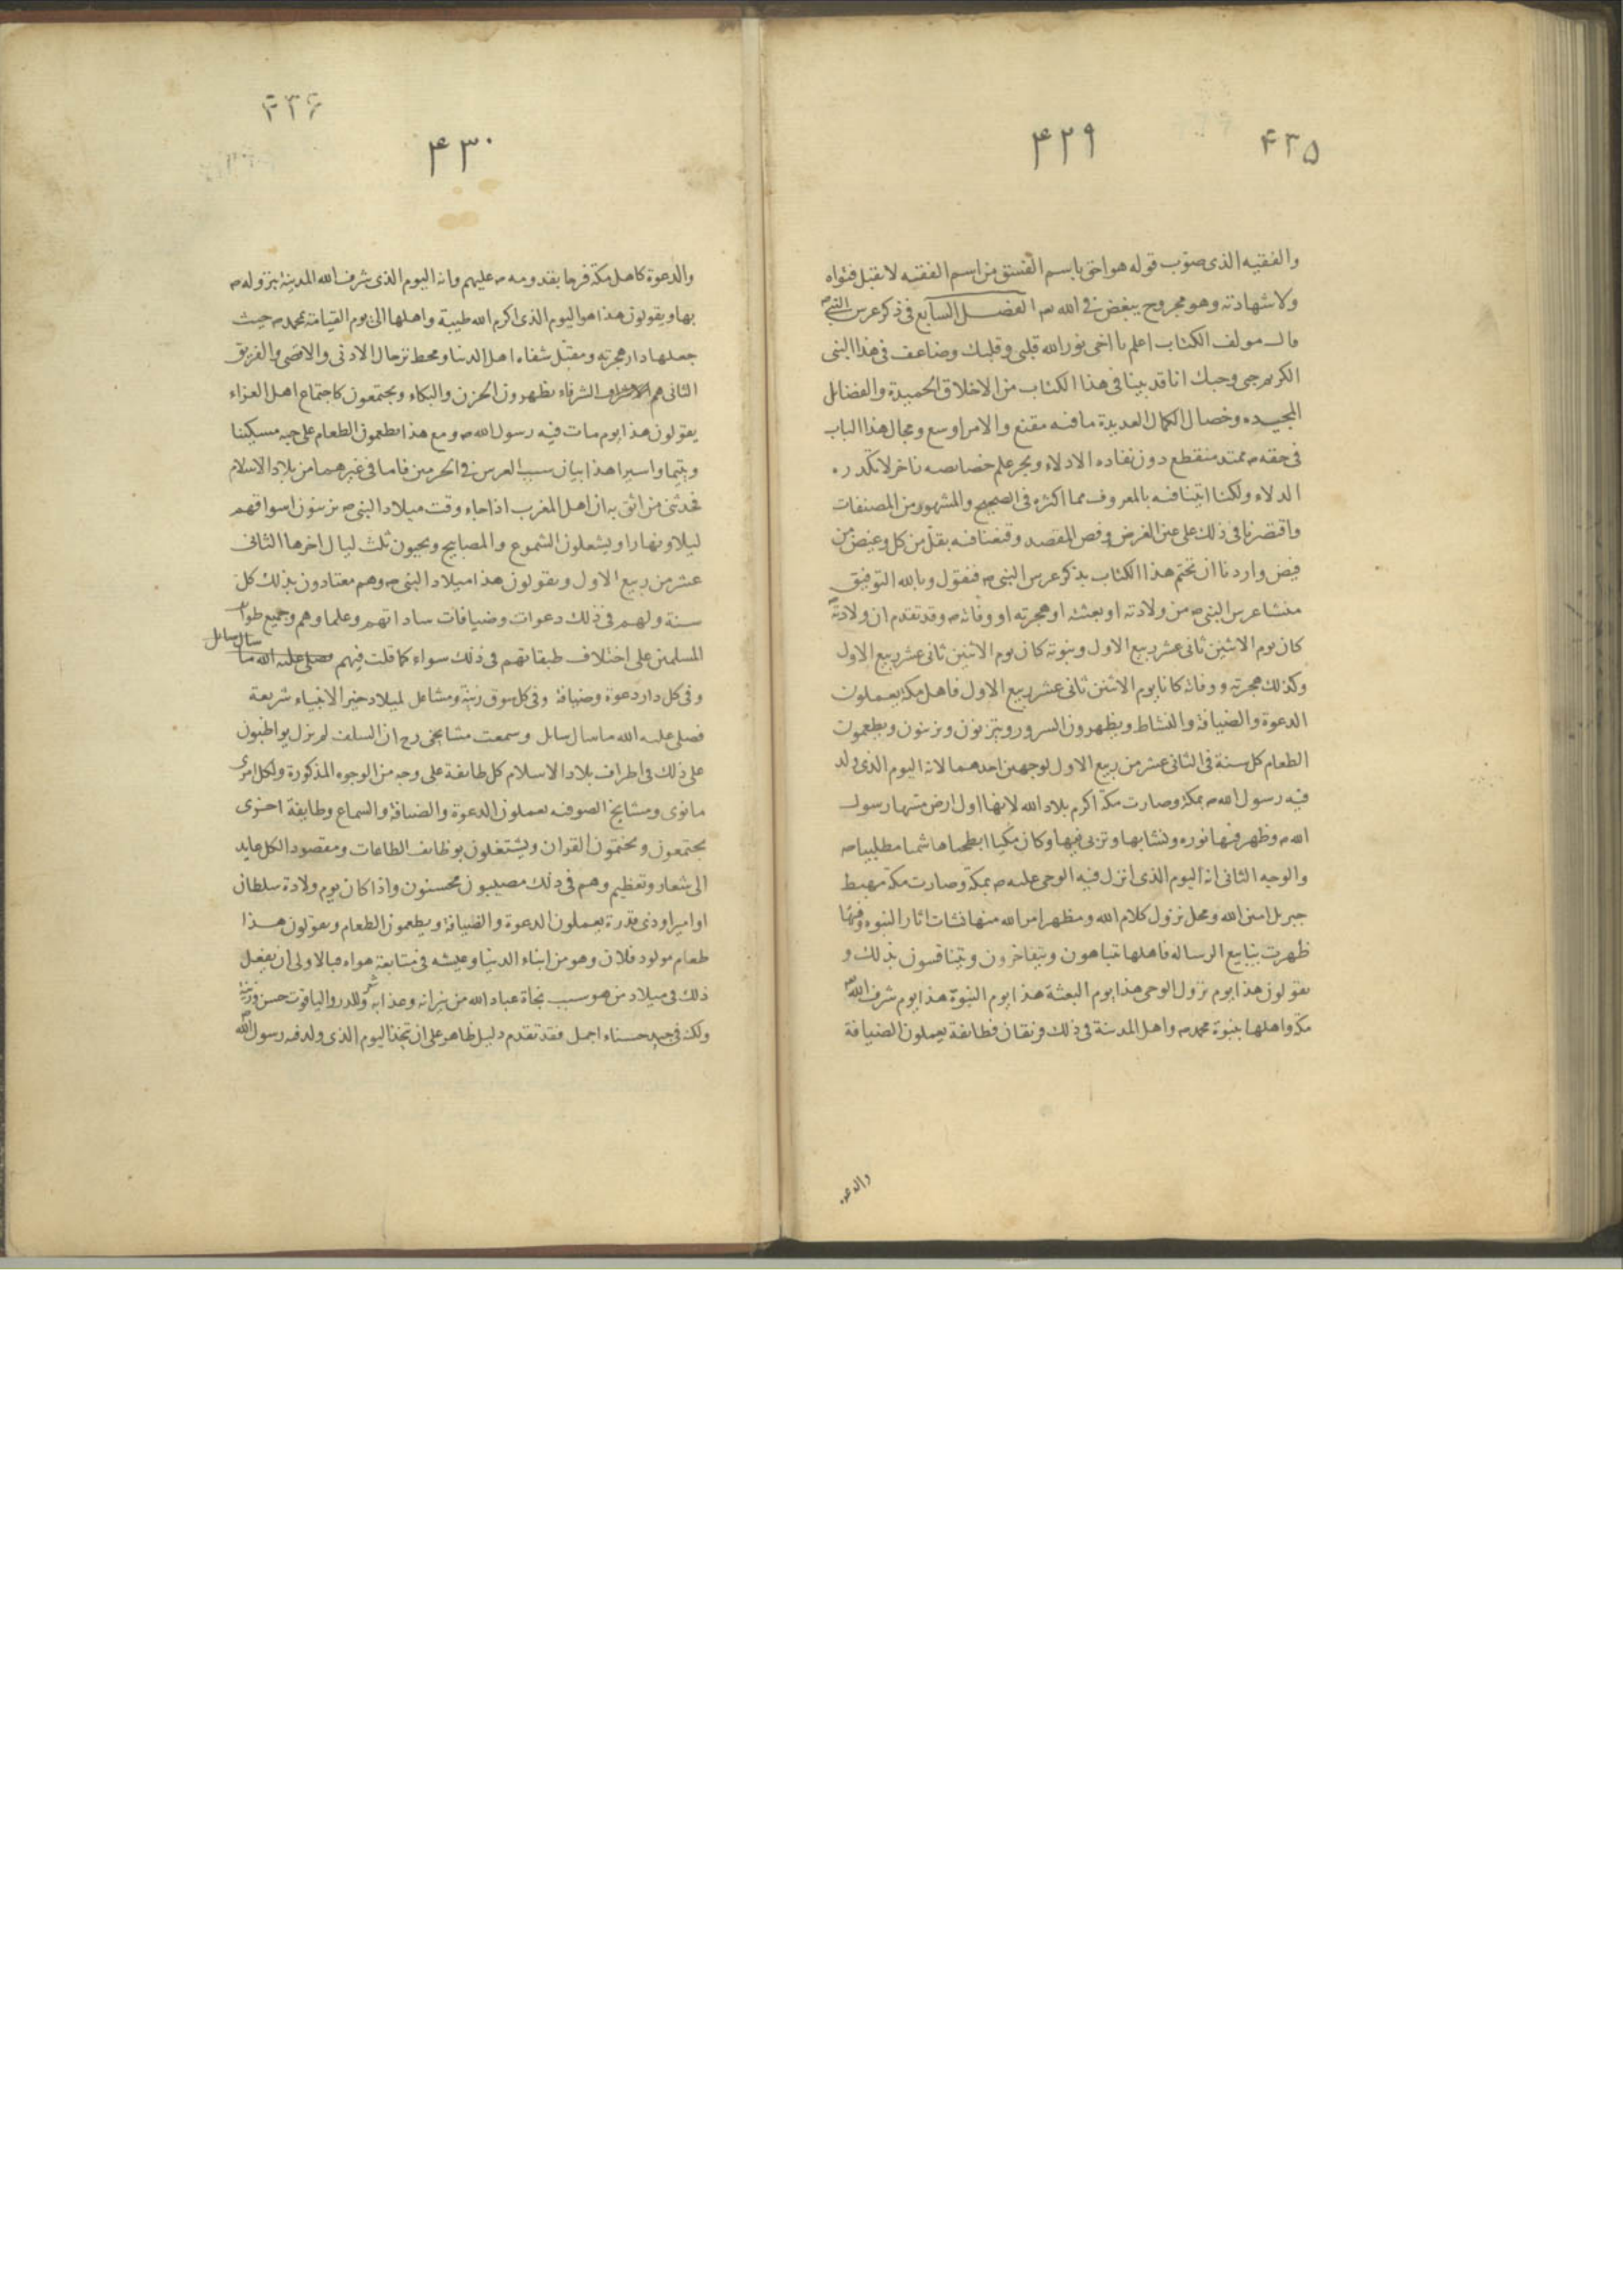 ٤٣٥
٤٢٩
والفقيه الذى صوّب قوله هو احق باسم الفسق من اسم الفقيه لا يقبل فتواه
ولا شهادته وهو مجروح يبغض فى الله الفصل السابع فى ذكر عرس النبى ص
قال مولف الكتاب اعلم يا اخى نور الله قلبى وقلبك وضاعف فى هذا النبى
الكريم حبى وحبك انا قد بينا فى هذا الكتاب من الاخلاق الحميدة والفضايل
المجيده وخصال الكمال العديدة ما فيه مقنع والامر اوسع ومجال هذا الباب
فى حقه ص ممتد منقطع دون نفاده الادلاء وبحر علم خصايصه زاخر لا تكدره
الدلاء ولكنا اتينا فيه بالمعروف مما اكثره فى الصحيح والمشهور من المصنفات
واقتصرنا فى ذلك على عين الغرض وفص المقصد وقنعنا فيه بقل من كل وغيض من
فيض واردنا ان نختم هذا الكتاب بذكر عرس النبى ص فنقول وبالله التوفيق
منشا عرس النبى ص من ولادته او بعثته او هجرته او وفاته ص وقد تقدم ان ولادته
كان يوم الاثنين ثانى عشر ربيع الاول ونبوته كان يوم الاثنين ثانى عشر ربيع الاول
وكذلك هجرته ووفاته كانا يوم الاثنين ثانى عشر ربيع الاول فاهل مكة يعملون
الدعوة والضيافة والنشاط ويظهرون السرور ويتزينون ويزينون ويطعمون
الطعام كل سنة فى الثانى عشر من ربيع الاول لوجهين احدهما لانه اليوم الذى ولد
فيه رسول الله ص بمكة وصارت مكة اكرم بلاد الله لانها اول ارض مسها رسول
الله ص وظهر فيها نوره ونشا بها وتربى فيها وكان مكيا ابطحيا هاشميا مطلبيا ص
والوجه الثانى انه اليوم الذى انزل فيه الوحى عليه ص بمكة وصارت مكة مهبط
جبريل امين الله ومحل نزول كلام الله ومظهر امر الله منها نشات اثار النبوه وفيها
ظهرت ينابيع الرساله فاهلها يتباهون ويتفاخرون ويتنافسون بذلك و
يقولون هذا يوم نزول الوحى هذا يوم البعثة هذا يوم النبوة هذا يوم شرف الله
مكة واهلها بنبوة محمد ص واهل المدينة فى ذلك فرقتان فطايفة يعملون الضيافة
والدعوه
٤٣٦
٤٣٠
والدعوة كاهل مكة فرحا بقدومه ص عليهم وانه اليوم الذى شرف الله المدينة بنزوله ص
بها ويقولون هذا هو اليوم الذى اكرم الله طيبة واهلها الى يوم القيامة بمحمد ص حيث
جعلها دار هجرته ومقبل شفاه اهل الدنيا ومحط ترحال الادنى والاقصى والفريق
الثانى هم الشرفاء يظهرون الحزن والبكاء ويجتمعون كاجتماع اهل العزاء
يقولون هذا يوم مات فيه رسول الله ص ومع هذا يطعمون الطعام على حبه مسكينا
ويتيما واسيرا هذا بيان سبب العرس فى الحرمين فاما فى غيرهما من بلاد الاسلام
فحدثنى من اثق به ان اهل المغرب اذا جاء وقت ميلاد النبى ص يزينون اسواقهم
ليلا ونهارا ويشعلون الشموع والمصابيح ويحيون ثلث ليال اخرها الثانى
عشر من ربيع الاول ويقولون هذا ميلاد النبى ص وهم معتادون بذلك كل
سنة ولهم فى ذلك دعوات وضيافات ساداتهم وعلماوهم وجميع طوا
المسلمين على اختلاف طبقاتهم فى ذلك سواء كما قلت فيهم صلى عليه الله ما سال سايل
وفى كل دار دعوة وضيافة وفى كل سوق زينة ومشاعل لميلاد خير الانبياء شريعة
فصلى عليه الله ما سال سايل وسمعت مشايخى رح ان السلف لم يزل يواظبون
على ذلك فى اطراف بلاد الاسلام كل طايفة على وجه من الوجوه المذكورة ولكل امرئ
ما نوى ومشايخ الصوفيه يعملون الدعوة والضيافة والسماع وطايفة اخرى
يجتمعون ويختمون القران ويشتغلون بوظايف الطاعات ومقصود الكل عايد
الى شعار وتعظيم وهم فى ذلك مصيبون محسنون واذا كان يوم ولادة سلطان
او امير او ذى قدرة يعملون الدعوة والضيافة ويطعمون الطعام ويقولون هذا
طعام مولود فلان وهو من ابناء الدنيا وعيشه فى متابعة هواه فبالاولى ان يفعل
ذلك فى ميلاد من هو سبب نجاة عباد الله من نيرانه وعذابه شعر وللدر والياقوت حسن وزينة
ولكن فى جيد حسناء اجمل فقد تقدم دليل ظاهر على ان يتخذ اليوم الذى ولد فيه رسول الله